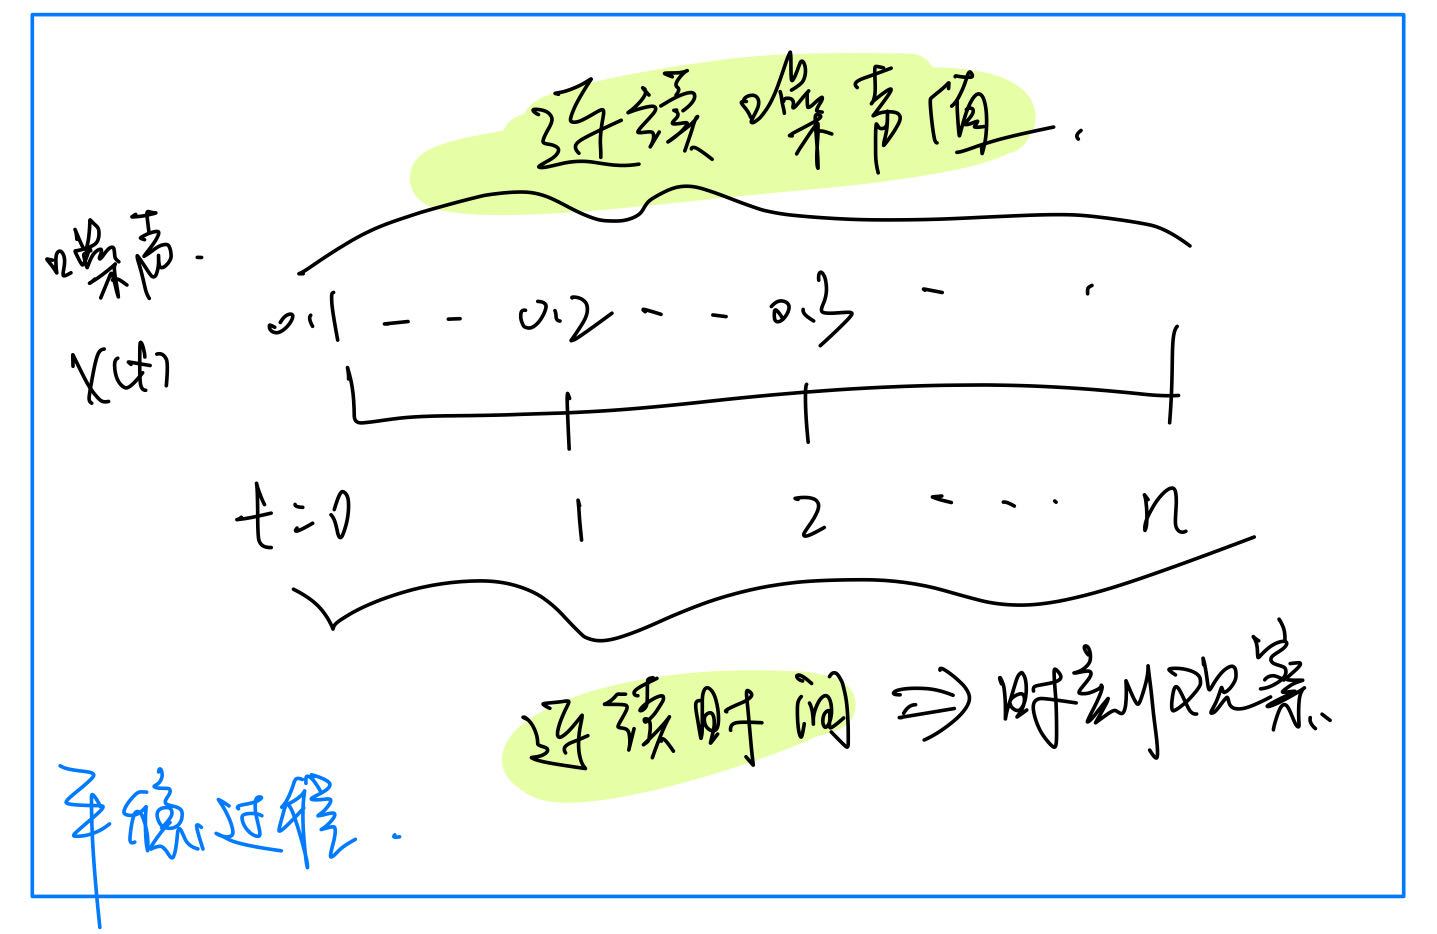 连续噪声值.
噪声.
0.1 -- 0.2 -- 0.3 - .
X(t)
t=0 1 2 ... n
连续时间 ⇒ 时刻观察.
平稳过程.